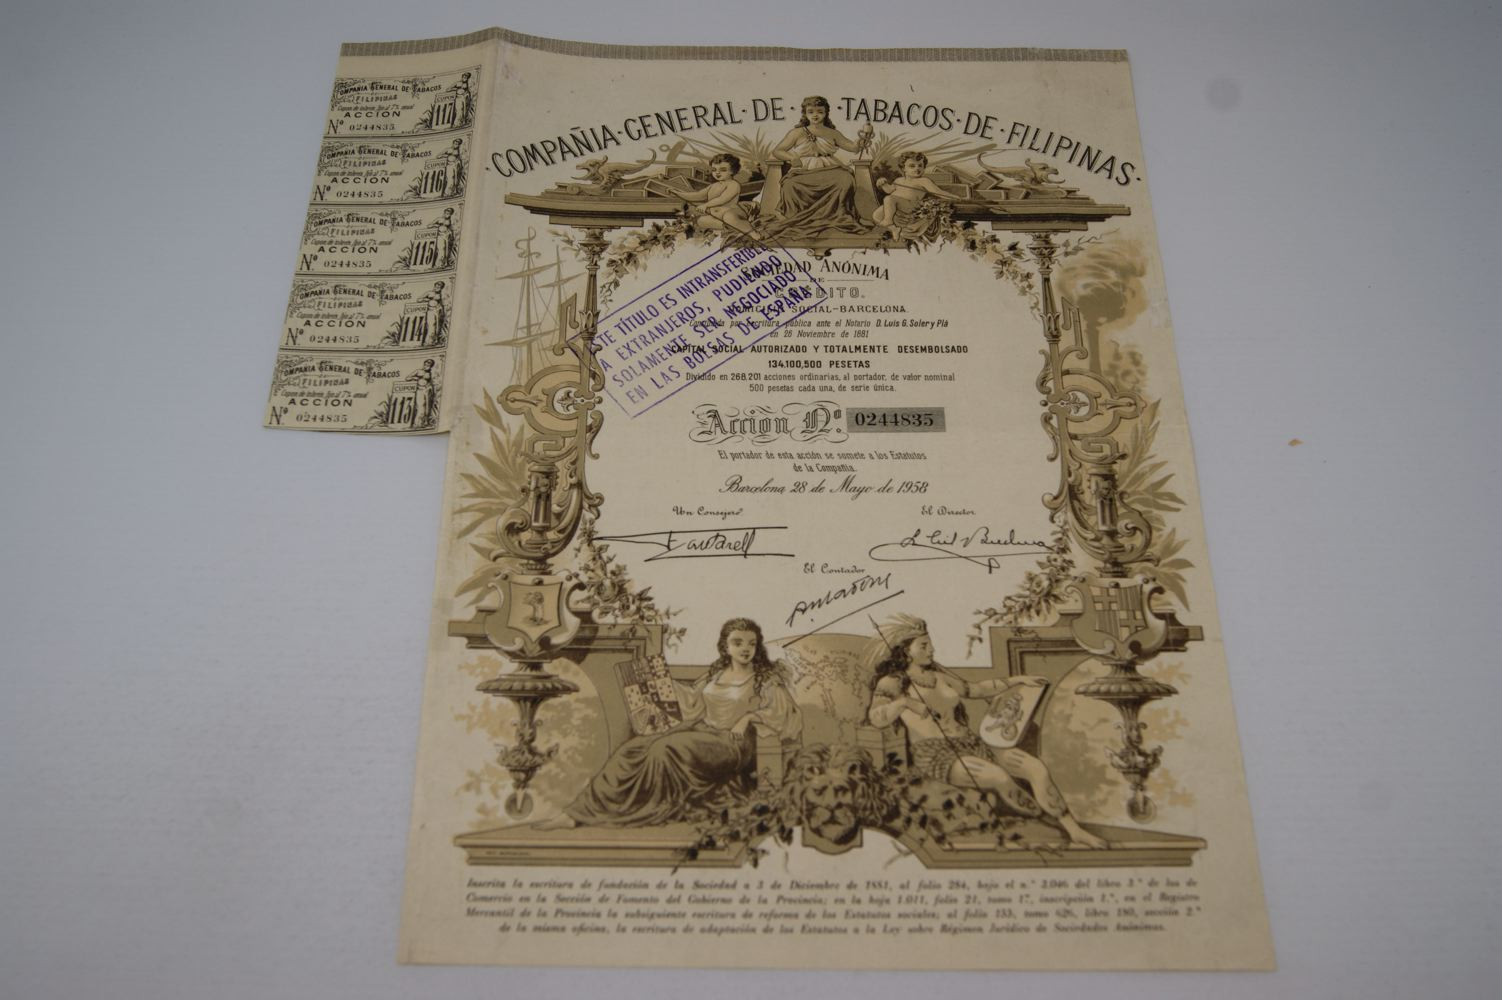 COMPAÑIA GENERAL DE TABACOS
FILIPINAS
Cupon de interes fijo al 7% anual
ACCION
Nº 0244835
CUPON
117
COMPAÑIA GENERAL DE TABACOS
FILIPINAS
Cupon de interes fijo al 7% anual
ACCION
Nº 0244835
CUPON
116
COMPAÑIA GENERAL DE TABACOS
FILIPINAS
Cupon de interes fijo al 7% anual
ACCION
Nº 0244835
CUPON
115
COMPAÑIA GENERAL DE TABACOS
FILIPINAS
Cupon de interes fijo al 7% anual
ACCION
Nº 0244835
CUPON
114
COMPAÑIA GENERAL DE TABACOS
FILIPINAS
Cupon de interes fijo al 7% anual
ACCION
Nº 0244835
CUPON
113
·COMPAÑIA·GENERAL·DE·TABACOS·DE·FILIPINAS·
ESTE TÍTULO ES INTRANSFERIBLE
A EXTRANJEROS, PUDIENDO
SOLAMENTE SER NEGOCIADO
EN LAS BOLSAS DE ESPAÑA
SOCIEDAD ANÓNIMA
DE
CRÉDITO.
DOMICILIO SOCIAL-BARCELONA.
Constituida por escritura pública ante el Notario D. Luis G. Soler y Plá
en 26 Noviembre de 1881
CAPITAL SOCIAL AUTORIZADO Y TOTALMENTE DESEMBOLSADO
134.100,500 PESETAS
Dividido en 268.201 acciones ordinarias, al portador, de valor nominal
500 pesetas cada una, de serie única.
Acción Nº. 0244835
El portador de esta acción se somete a los Estatutos
de la Compañía.
Barcelona 28 de Mayo de 1958
Un Consejero
El Director
El Contador
Inscrita la escritura de fundación de la Sociedad a 3 de Diciembre de 1881, al folio 284, bajo el n.º 2.046 del libro 3.º de los de
Comercio en la Sección de Fomento del Gobierno de la Provincia; en la hoja 1.011, folio 21, tomo 17, inscripción 1.ª, en el Registro
Mercantil de la Provincia la subsiguiente escritura de reforma de los Estatutos sociales; al folio 153, tomo 626, libro 180, sección 2.ª
de la misma oficina, la escritura de adaptación de los Estatutos a la Ley sobre Régimen Jurídico de Sociedades Anónimas.